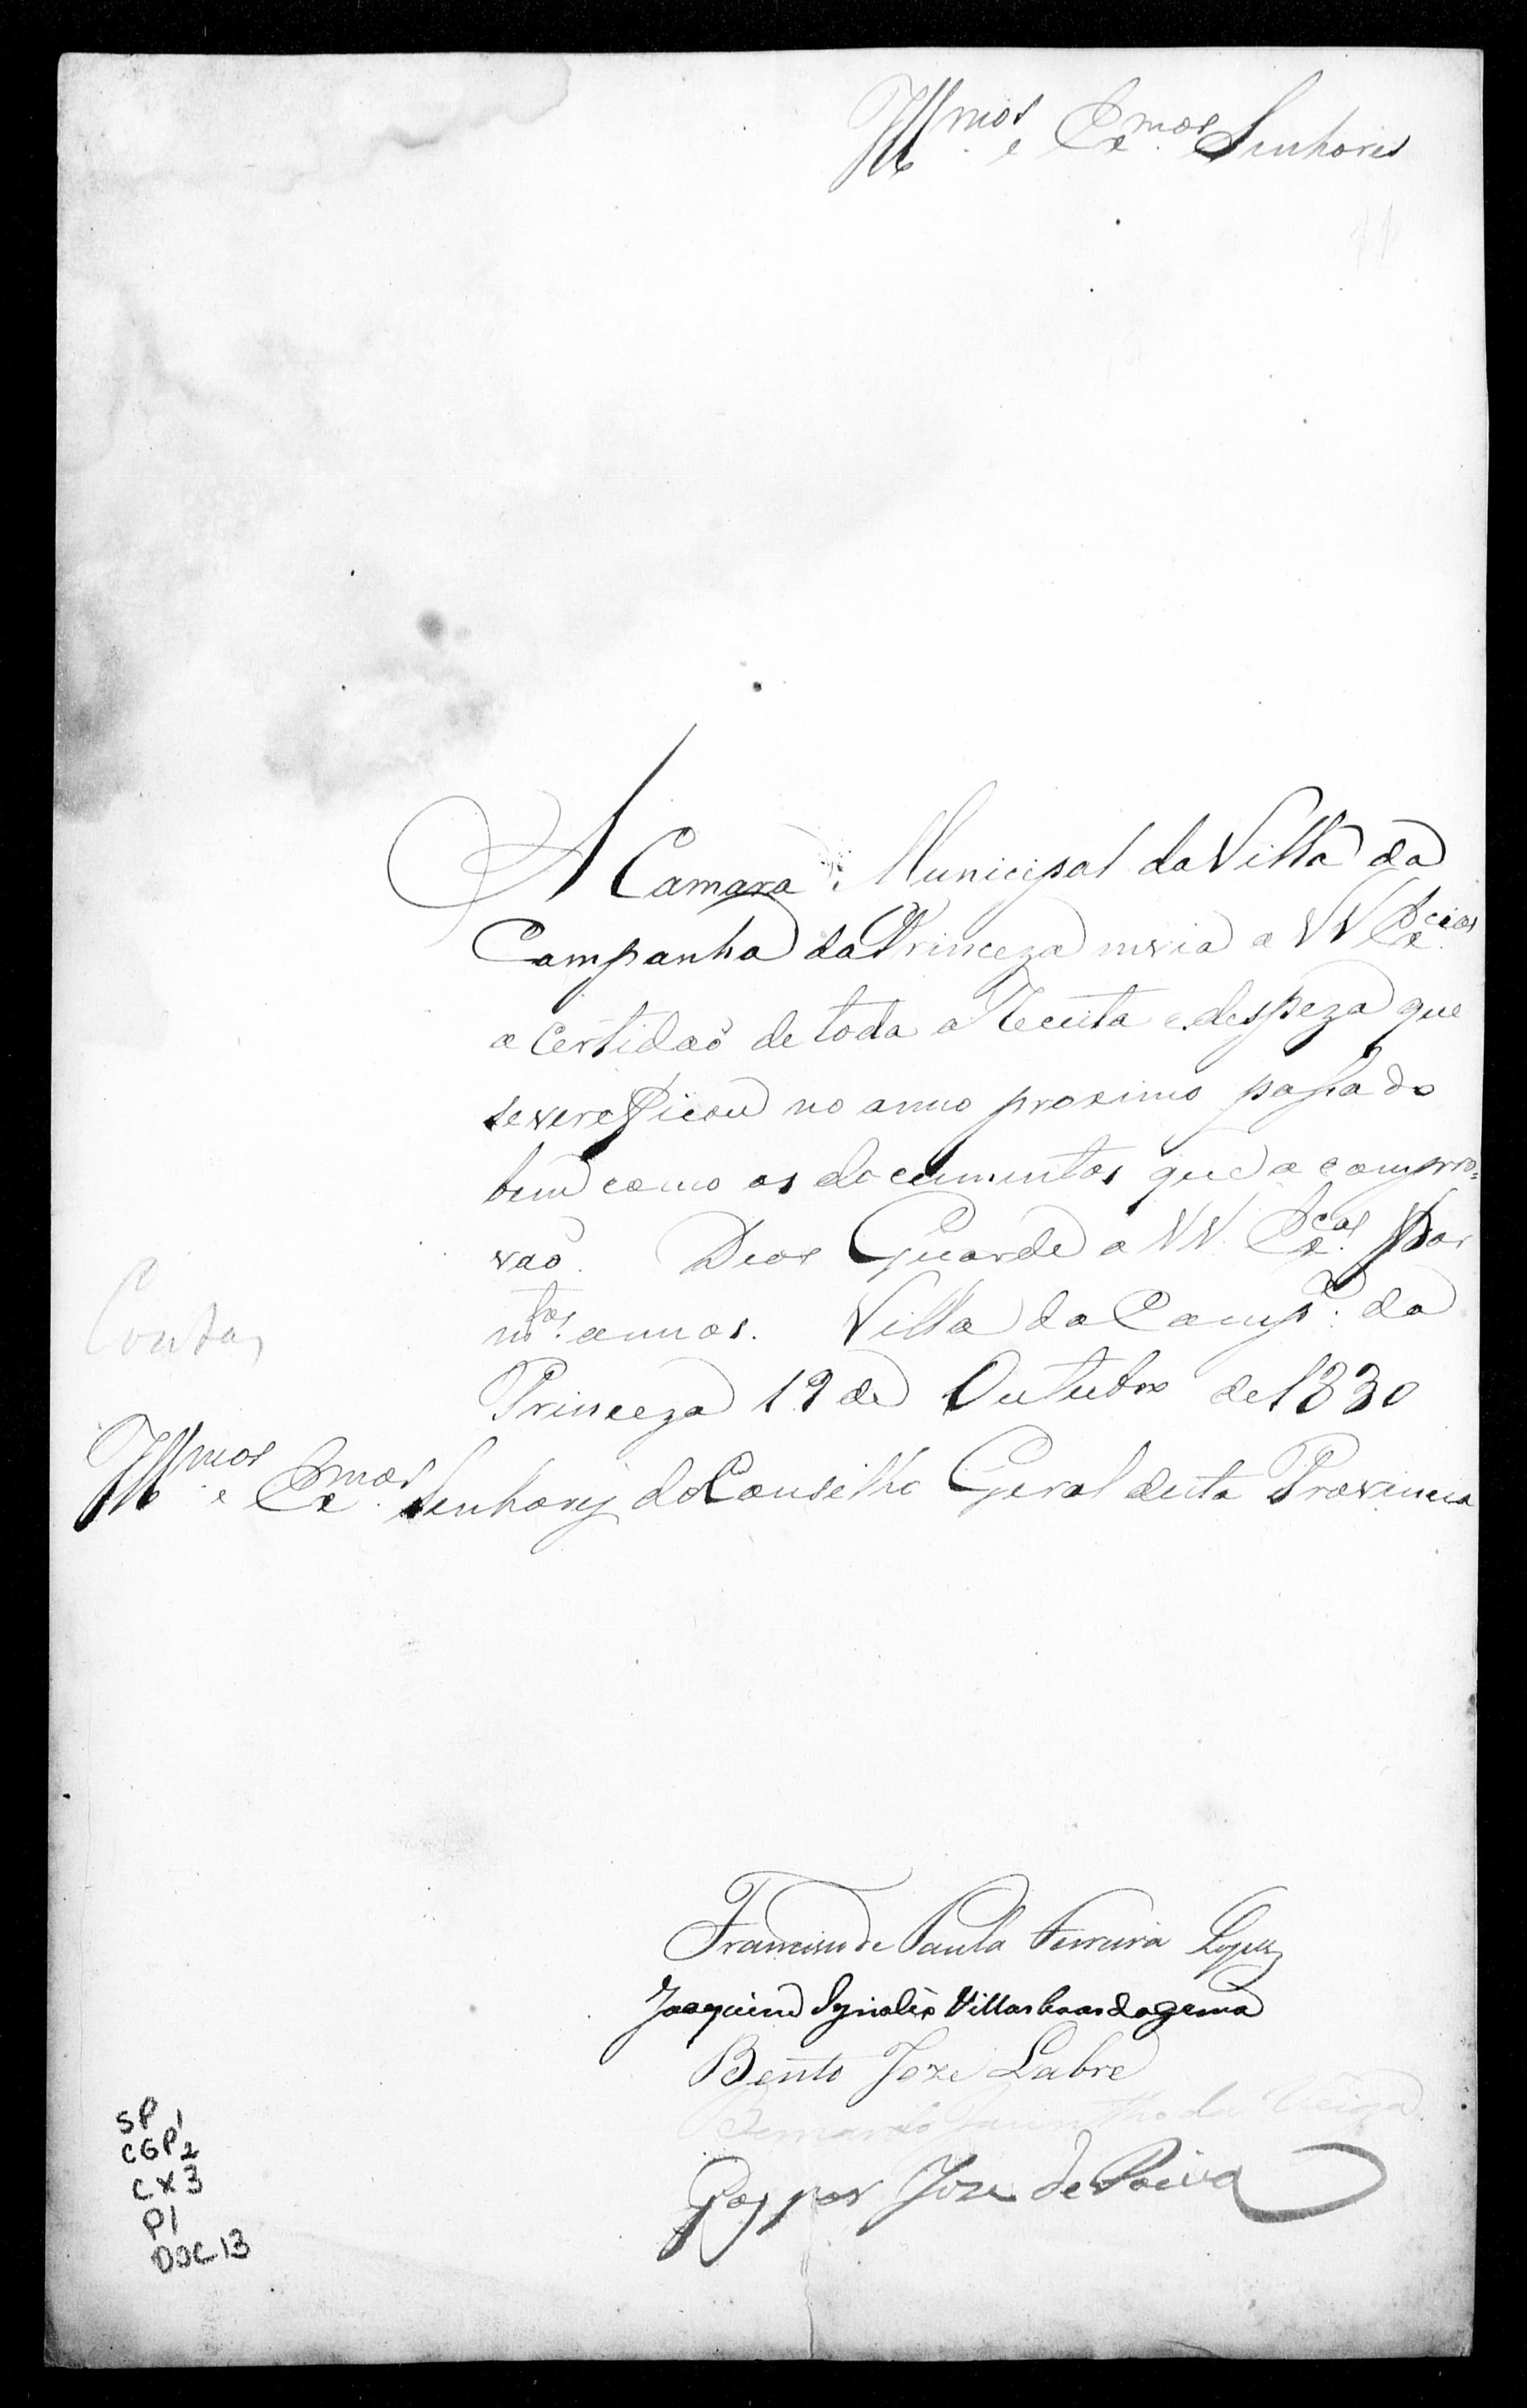 Illmos. e Exmos. Senhores
A Camara Municipal da Villa da
Campanha da Princeza invia a VV Excias
a Certidaõ de toda a Receita e despeza que
se verificou no anno proximo passado
bem como os documentos que a compro=
vaõ. Deos Guarde a VV. Excas. por
mtos. annos. Villa da Campa. da
Princeza 19 de Outubro de 1830
Contas
Illmos. e Exmos. Senhores do Conselho Geral desta Provincia
Francisco de Paula Ferreira Lopes
Joaquim Ignacio Villas boas da gama
Bento Joze Labre
Bernardo Jacintho da Veiga
Gaspar Joze de Paiva
SP 1
CGP 2
CX 3
P1
DOC 13